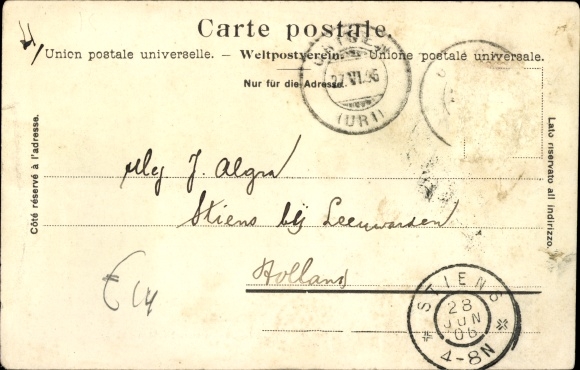 Carte postale.
Union postale universelle. — Weltpostverein. — Unione postale universale.
Nur für die Adresse.
27 VI. 06
(URI)
Côté réservé à l'adresse.
Lato riservato all indirizzo.
Mej J. Algra
Stiens bij Leeuwarden
Holland
€ 14
STIENS
28
JUN
06
4-8N